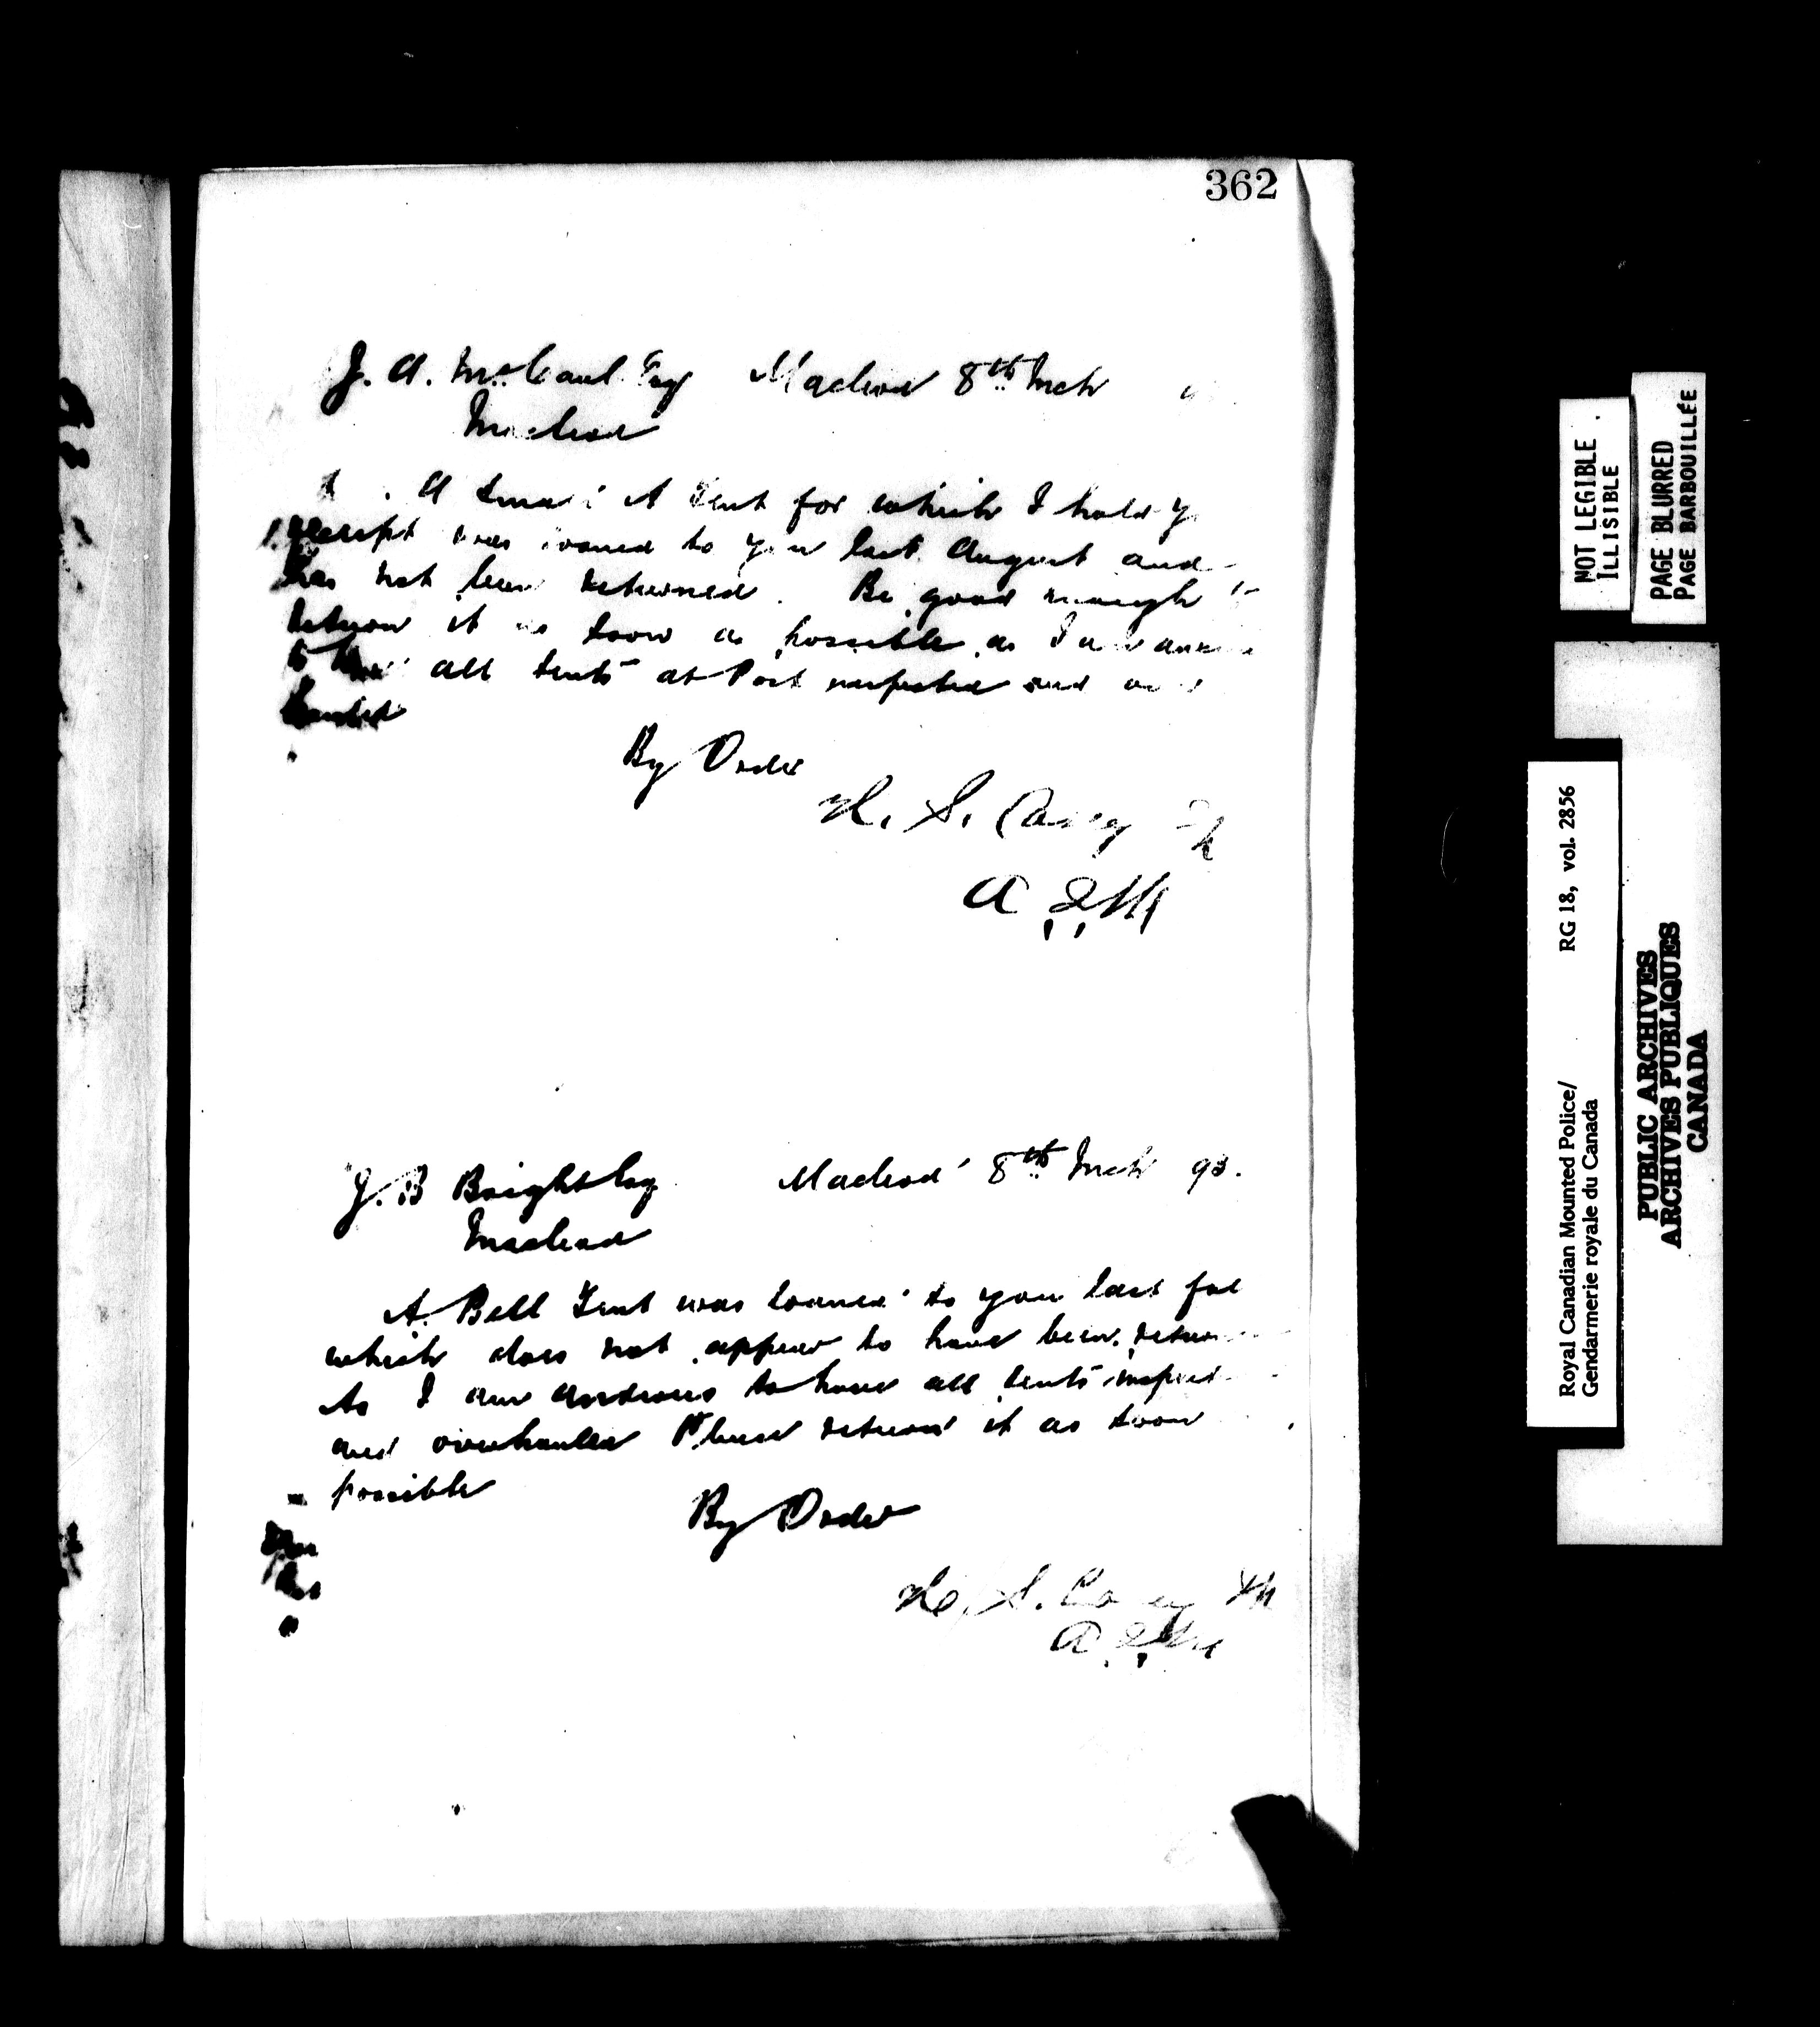 362
J. A. McCaul Esq Macleod 8th Mch
Macleod
A Small A Tent for which I hold
receipt was loaned to you last August and
has not been returned. Be good enough to
return it as soon as possible as I am
to all tents at Post inspected and
By Order
H. S. Casey
A Q M
J. B Bright Esq Macleod 8th Mch 93.
Macleod
A Bell Tent was loaned to you last fal
which does not appear to have been
As I am anxious to have all tents
and overhauled Please return it as soon
possible
By Order
H. S. Casey
A Q M
NOT LEGIBLE
ILLISIBLE
PAGE BLURRED
PAGE BARBOUILLÉE
Royal Canadian Mounted Police/ RG 18, vol. 2856
Gendarmerie royale du Canada
PUBLIC ARCHIVES
ARCHIVES PUBLIQUES
CANADA